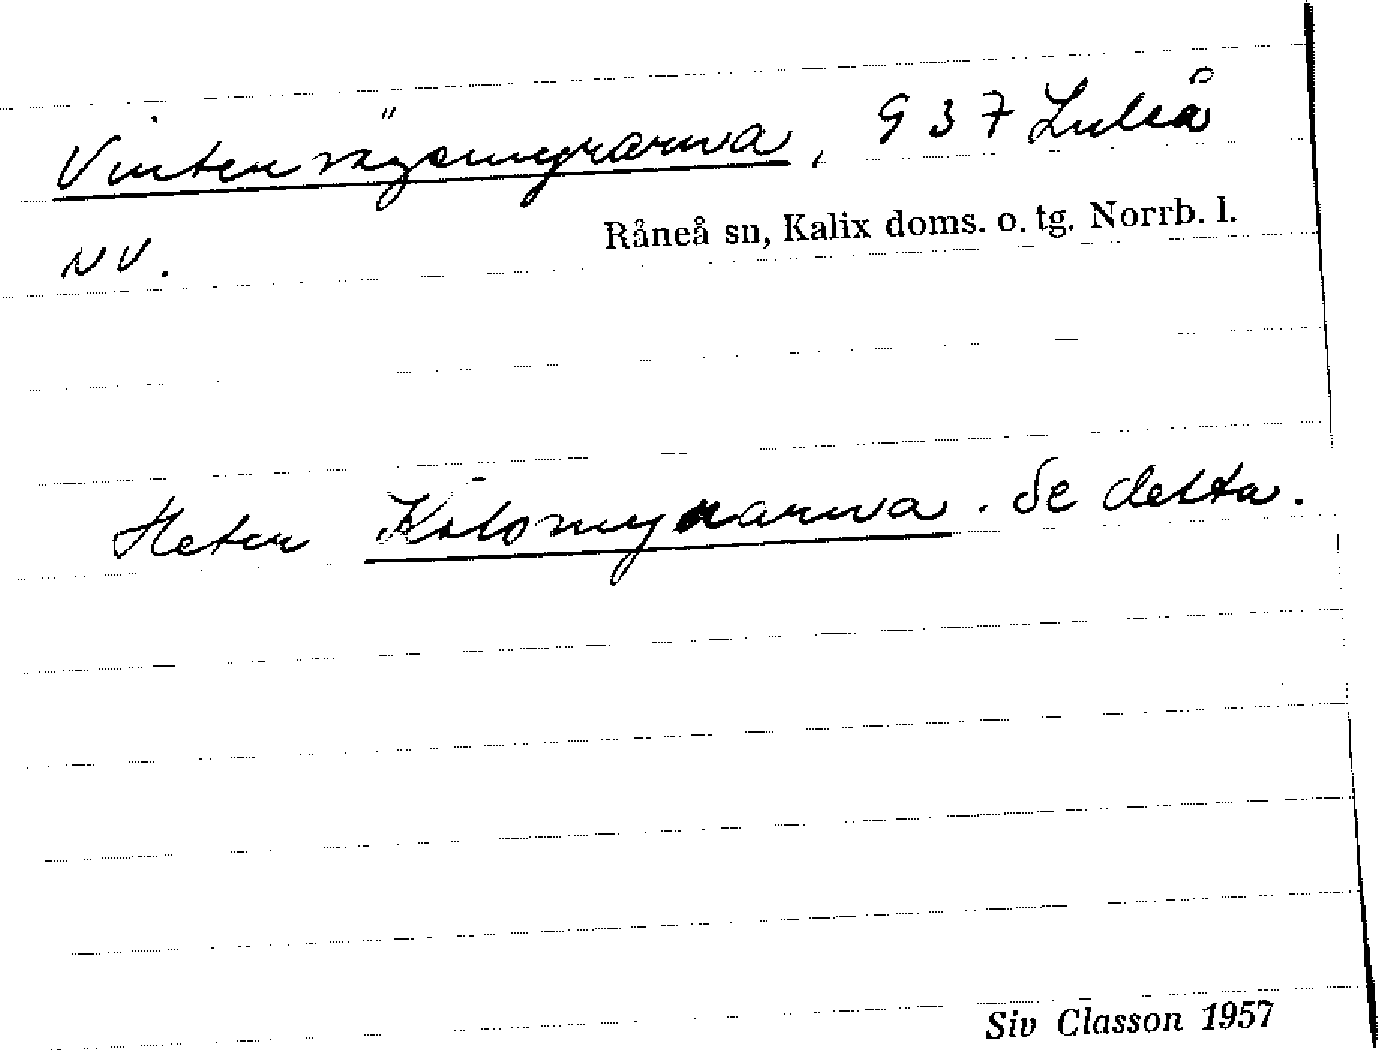 Vintervägsmyrarna, 937 Luleå
Råneå sn, Kalix doms. o. tg. Norrb. l.
NV.
Heter Kölsmyrarna. Se detta.
Siv Classon 1957